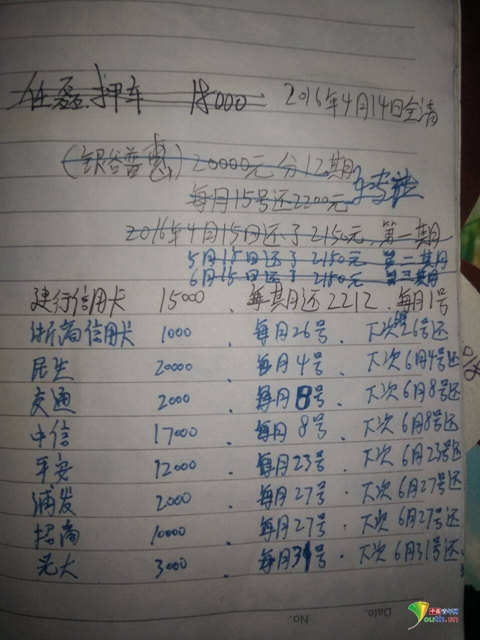 任磊押车 18000. 2016年4月14日全清
(银谷普惠) 20000元分12期
每月15号还2200元
2016年4月15日还了2150元,第一期
5月15日还了2150元 第二期
6月15日还了2150元 第三期
建行信用卡 15000. 每期还2212. 每月1号
浙商信用卡 1000. 每月26号. 下次26号还
民生 20000. 每月4号. 下次6月4号还
交通 2000. 每月8号. 下次6月8号还
中信 17000. 每月8号. 下次6月8号还
平安 12000. 每月23号. 下次6月23号还
浦发 2000. 每月27号. 下次6月27号还
招商 10000. 每月27号. 下次6月27号还
光大 3000. 每月31号. 下次6月31号还
No. Date.
中国青年网
Youth.cn